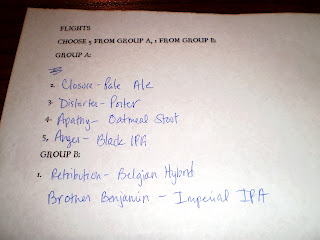 FLIGHTS
CHOOSE 5 FROM GROUP A, 1 FROM GROUP B:
GROUP A:
2. Closure - Pale Ale
3. Distorter - Porter
4. Apathy - Oatmeal Stout
5. Anger - Black IPA
GROUP B:
1. Retribution - Belgian Hybrid
Brother Benjamin - Imperial IPA